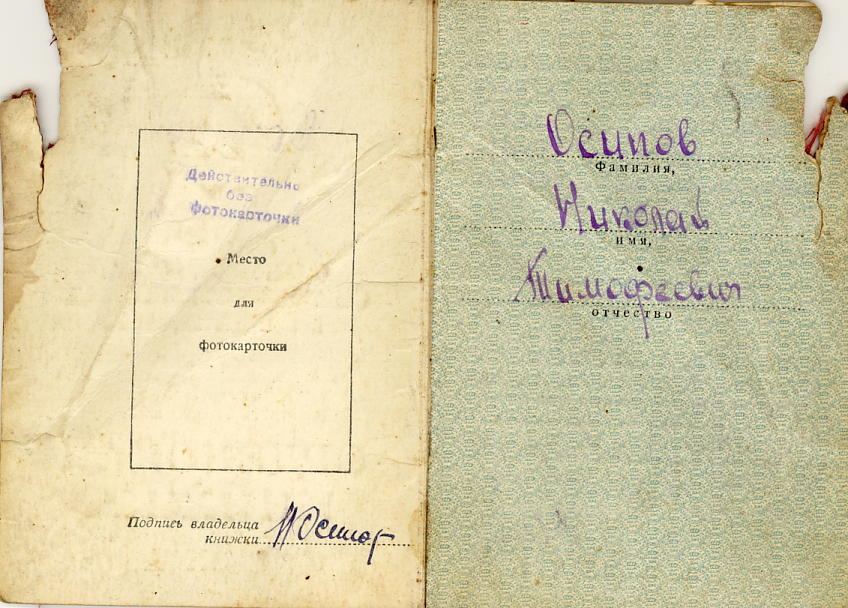 Действительно
без
фотокарточки
Место
для
фотокарточки
Подпись владельца
книжки НОсипов
Осипов
Фамилия,
Николай
имя,
Тимофеевич
отчество